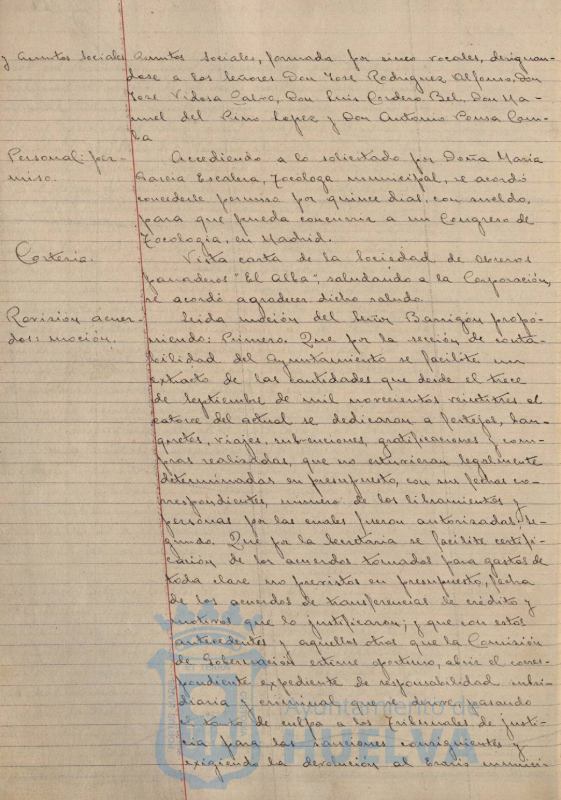 y Asuntos Sociales Asuntos Sociales, formada por cinco vocales, designan-
dose a los Señores Don José Rodriguez Alfonso, Don
José Vidosa Calvo, Don Luis Cordero Bel, Don Ma-
nuel del Pino Lopez y Don Antonio Ponsa Cam-
ba
Personal: per-
miso.
Accediendo a lo solicitado por Doña Maria
Garcia Escalera, Tocóloga municipal, se acordó
concederle permiso por quince dias, con sueldo,
para que pueda concurrir a un Congreso de
Tocologia, en Madrid.
Cortesia.
Vista carta de la Sociedad de Obreros
panaderos "El Alba", saludando a la Corporación,
se acordó agradecer dicho saludo.
Revisión acuer-
dos: moción.
Leida moción del Señor Barrigón propo-
niendo: Primero. Que por la sección de conta-
bilidad del Ayuntamiento se facilite un
extracto de las cantidades que desde el trece
de septiembre de mil novecientos veintitres al
catorce del actual se dedicaron a festejos, ban-
quetes, viajes, subvenciones, gratificaciones y com-
pras realizadas, que no estuvieran legalmente
determinadas en presupuesto, con sus fechas co-
rrespondientes, numero de los libramientos y
personas por las cuales fueron autorizadas; Se-
gundo. Que por la Secretaria se facilite certifi-
cación de los acuerdos tomados para gastos de
toda clase no previstos en presupuesto, fecha
de los acuerdos de transferencias de crédito y
motivos que lo justificaron; y que con estos
antecedentes y aquellos otros que la Comisión
de Gobernación estime oportuno, abrir el corres-
pondiente expediente de responsabilidad subsi-
diaria y criminal que se derive, pasando
el tanto de culpa a los Tribunales de justi-
cia para las sanciones consiguientes y
exigiendo la devolución al Erario munici-
Ayuntamiento de
HUELVA